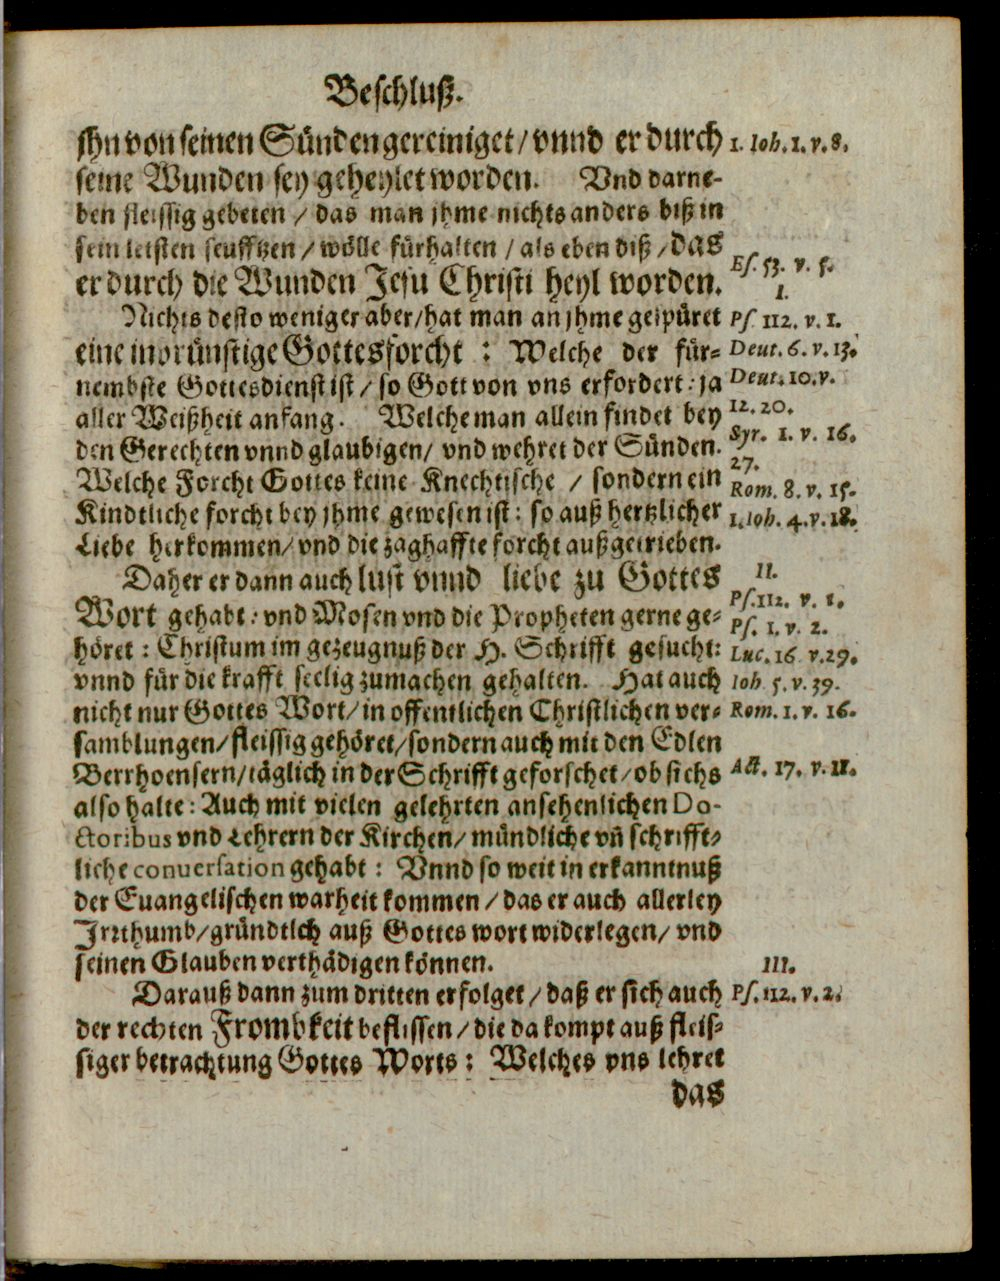 Beschluß.
jhn von seinen Sünden gereiniget / vnnd er durch 1. Ioh. 1. v. 8.
seine Wunden sey geheylet worden. Vnd darne-
ben fleissig gebeten / das man jhme nichts anders biß in
sein letsten seufftzen / wölle fürhalten / als eben diß / das
er durch die Wunden Jesu Christi heyl worden. Es. 53. v. 5.
1.
Nichts desto weniger aber / hat man an jhme gespüret Ps. 112. v. 1.
eine inbrünstige Gottesforcht : Welche der für= Deut. 6. v. 13.
nembste Gottesdienst ist / so Gott von vns erfordert : ja Deut. 10. v.
aller Weißheit anfang. Welche man allein findet bey 12. 20.
den Gerechten vnnd glaubigen / vnd wehret der Sünden. Syr. 1. v. 16.
27.
Welche Forcht Gottes keine Knechtische / sondern ein Rom. 8. v. 15.
Kindtliche forcht bey jhme gewesen ist : so auß hertzlicher 1. Ioh. 4. v. 18.
Liebe herkommen / vnd die zaghaffte forcht außgetrieben.
Daher er dann auch lust vnnd liebe zu Gottes II.
Wort gehabt : vnd Mosen vnd die Propheten gerne ge= Ps. 112. v. 1.
Ps. 1. v. 2.
höret : Christum im gezeugnuß der H. Schrifft gesucht: Luc. 16 v. 29.
vnnd für die krafft seelig zumachen gehalten. Hat auch Ioh 5. v. 39.
nicht nur Gottes Wort / in offentlichen Christlichen ver= Rom. 1. v. 16.
samblungen / fleissig gehöret / sondern auch mit den Edlen
Berrhoensern / täglich in der Schrifft geforschet / ob sichs Act. 17. v. 11.
also halte : Auch mit vielen gelehrten ansehenlichen Do-
ctoribus vnd Lehrern der Kirchen / mündliche vñ schrifft=
liche conuersation gehabt : Vnnd so weit in erkanntnuß
der Euangelischen warheit kommen / das er auch allerley
Irrthumb / gründtlch auß Gottes wort widerlegen / vnd
seinen Glauben verthädigen können. III.
Darauß dann zum dritten erfolget / daß er sich auch Ps. 112. v. 2.
der rechten Frombkeit beflissen / die da kompt auß fleis=
siger betrachtung Gottes Worts : Welches vns lehret
das